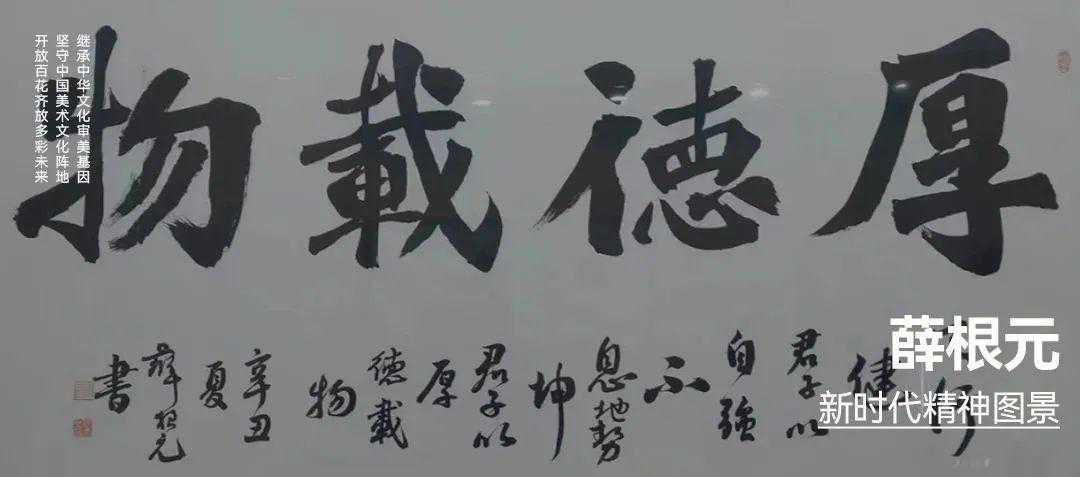 厚德載物
行
健
君子以
自強
不
息地勢
坤
君子以
厚
德載
物
辛丑
夏
薛根元
書
继承中华文化审美基因
坚守中国美术文化阵地
开放百花齐放多彩未来
薛根元
新时代精神图景